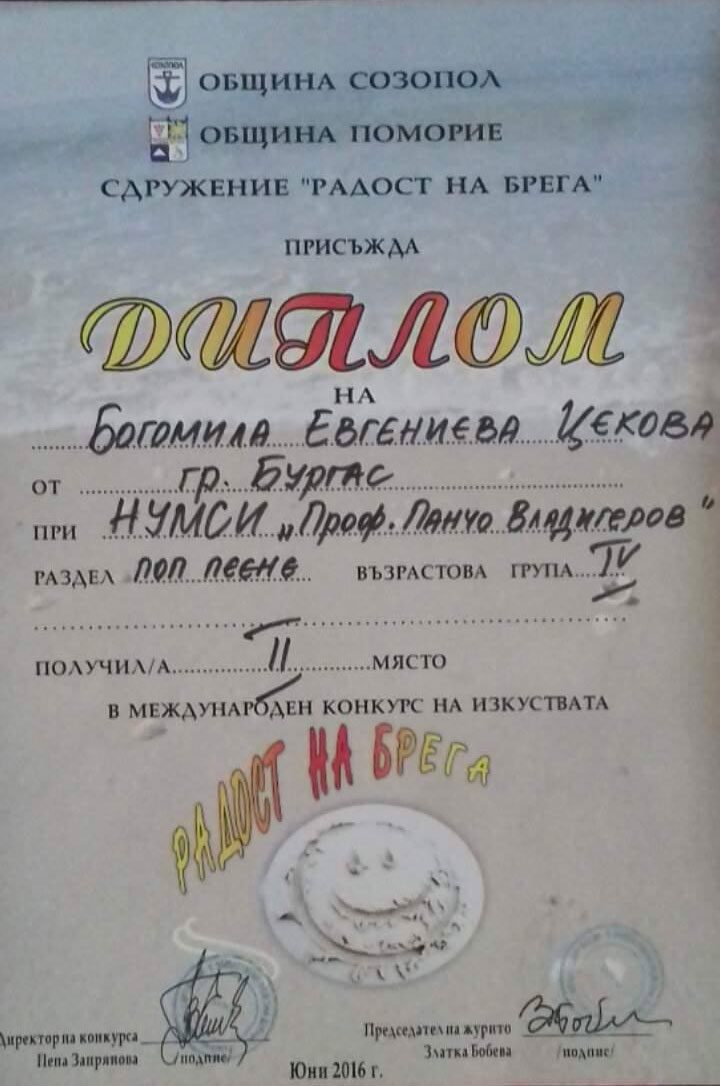 СОЗОПОЛ
ОБЩИНА СОЗОПОЛ
ОБЩИНА ПОМОРИЕ
СДРУЖЕНИЕ "РАДОСТ НА БРЕГА"
ПРИСЪЖДА
ДИПЛОМ
НА
БОГОМИЛА ЕВГЕНИЕВА ЦЕКОВА
ОТ гр. БУРГАС
ПРИ НУМСИ „Проф. Панчо Владигеров"
РАЗДЕЛ поп пеене ВЪЗРАСТОВА ГРУПА IV
ПОЛУЧИЛ/А II МЯСТО
В МЕЖДУНАРОДЕН КОНКУРС НА ИЗКУСТВАТА
РАДОСТ НА БРЕГА
Директор на конкурса
Пепа Запрянова /подпис/
Председател на журито
Златка Бобева /подпис/
Юни 2016 г.